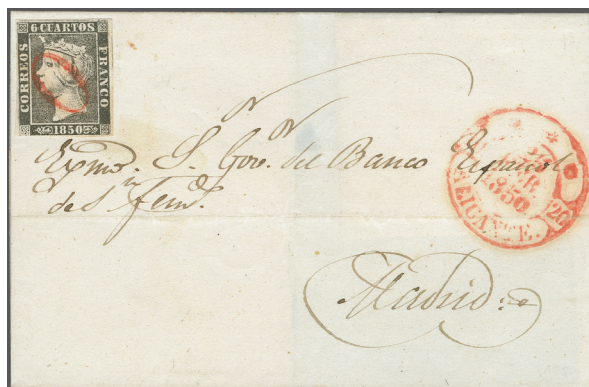 6 CUARTOS
CORREOS
FRANCO
1850
Exmo. Sr. Gor. del Banco Español
de Sn. Fernd.
1850
(20)
ALICANTE.
Madrid